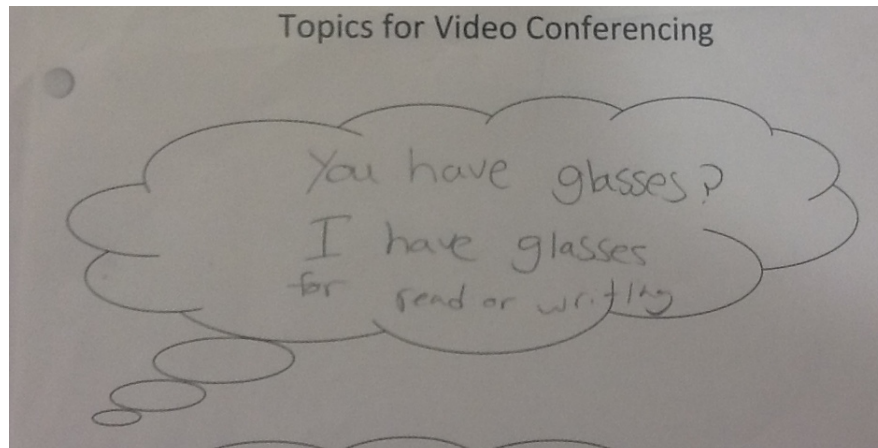 Topics for Video Conferencing
You have glasses?
I have glasses
for read or writing